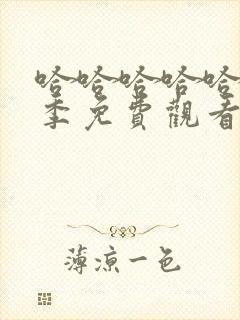 哈哈哈哈哈
季免費觀看
薄涼一色